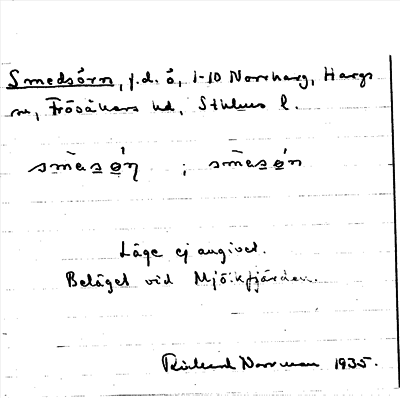 Smedsörn, f.d. ö, 1-10 Norrharg, Hargs
sn, Frösåkers hd, Sthlms l.
smēsǝ́ṇ ; smēsǝ́n
Läge ej angivet.
Beläget vid Mjölkfjärden.
Rickard Norrman 1935.